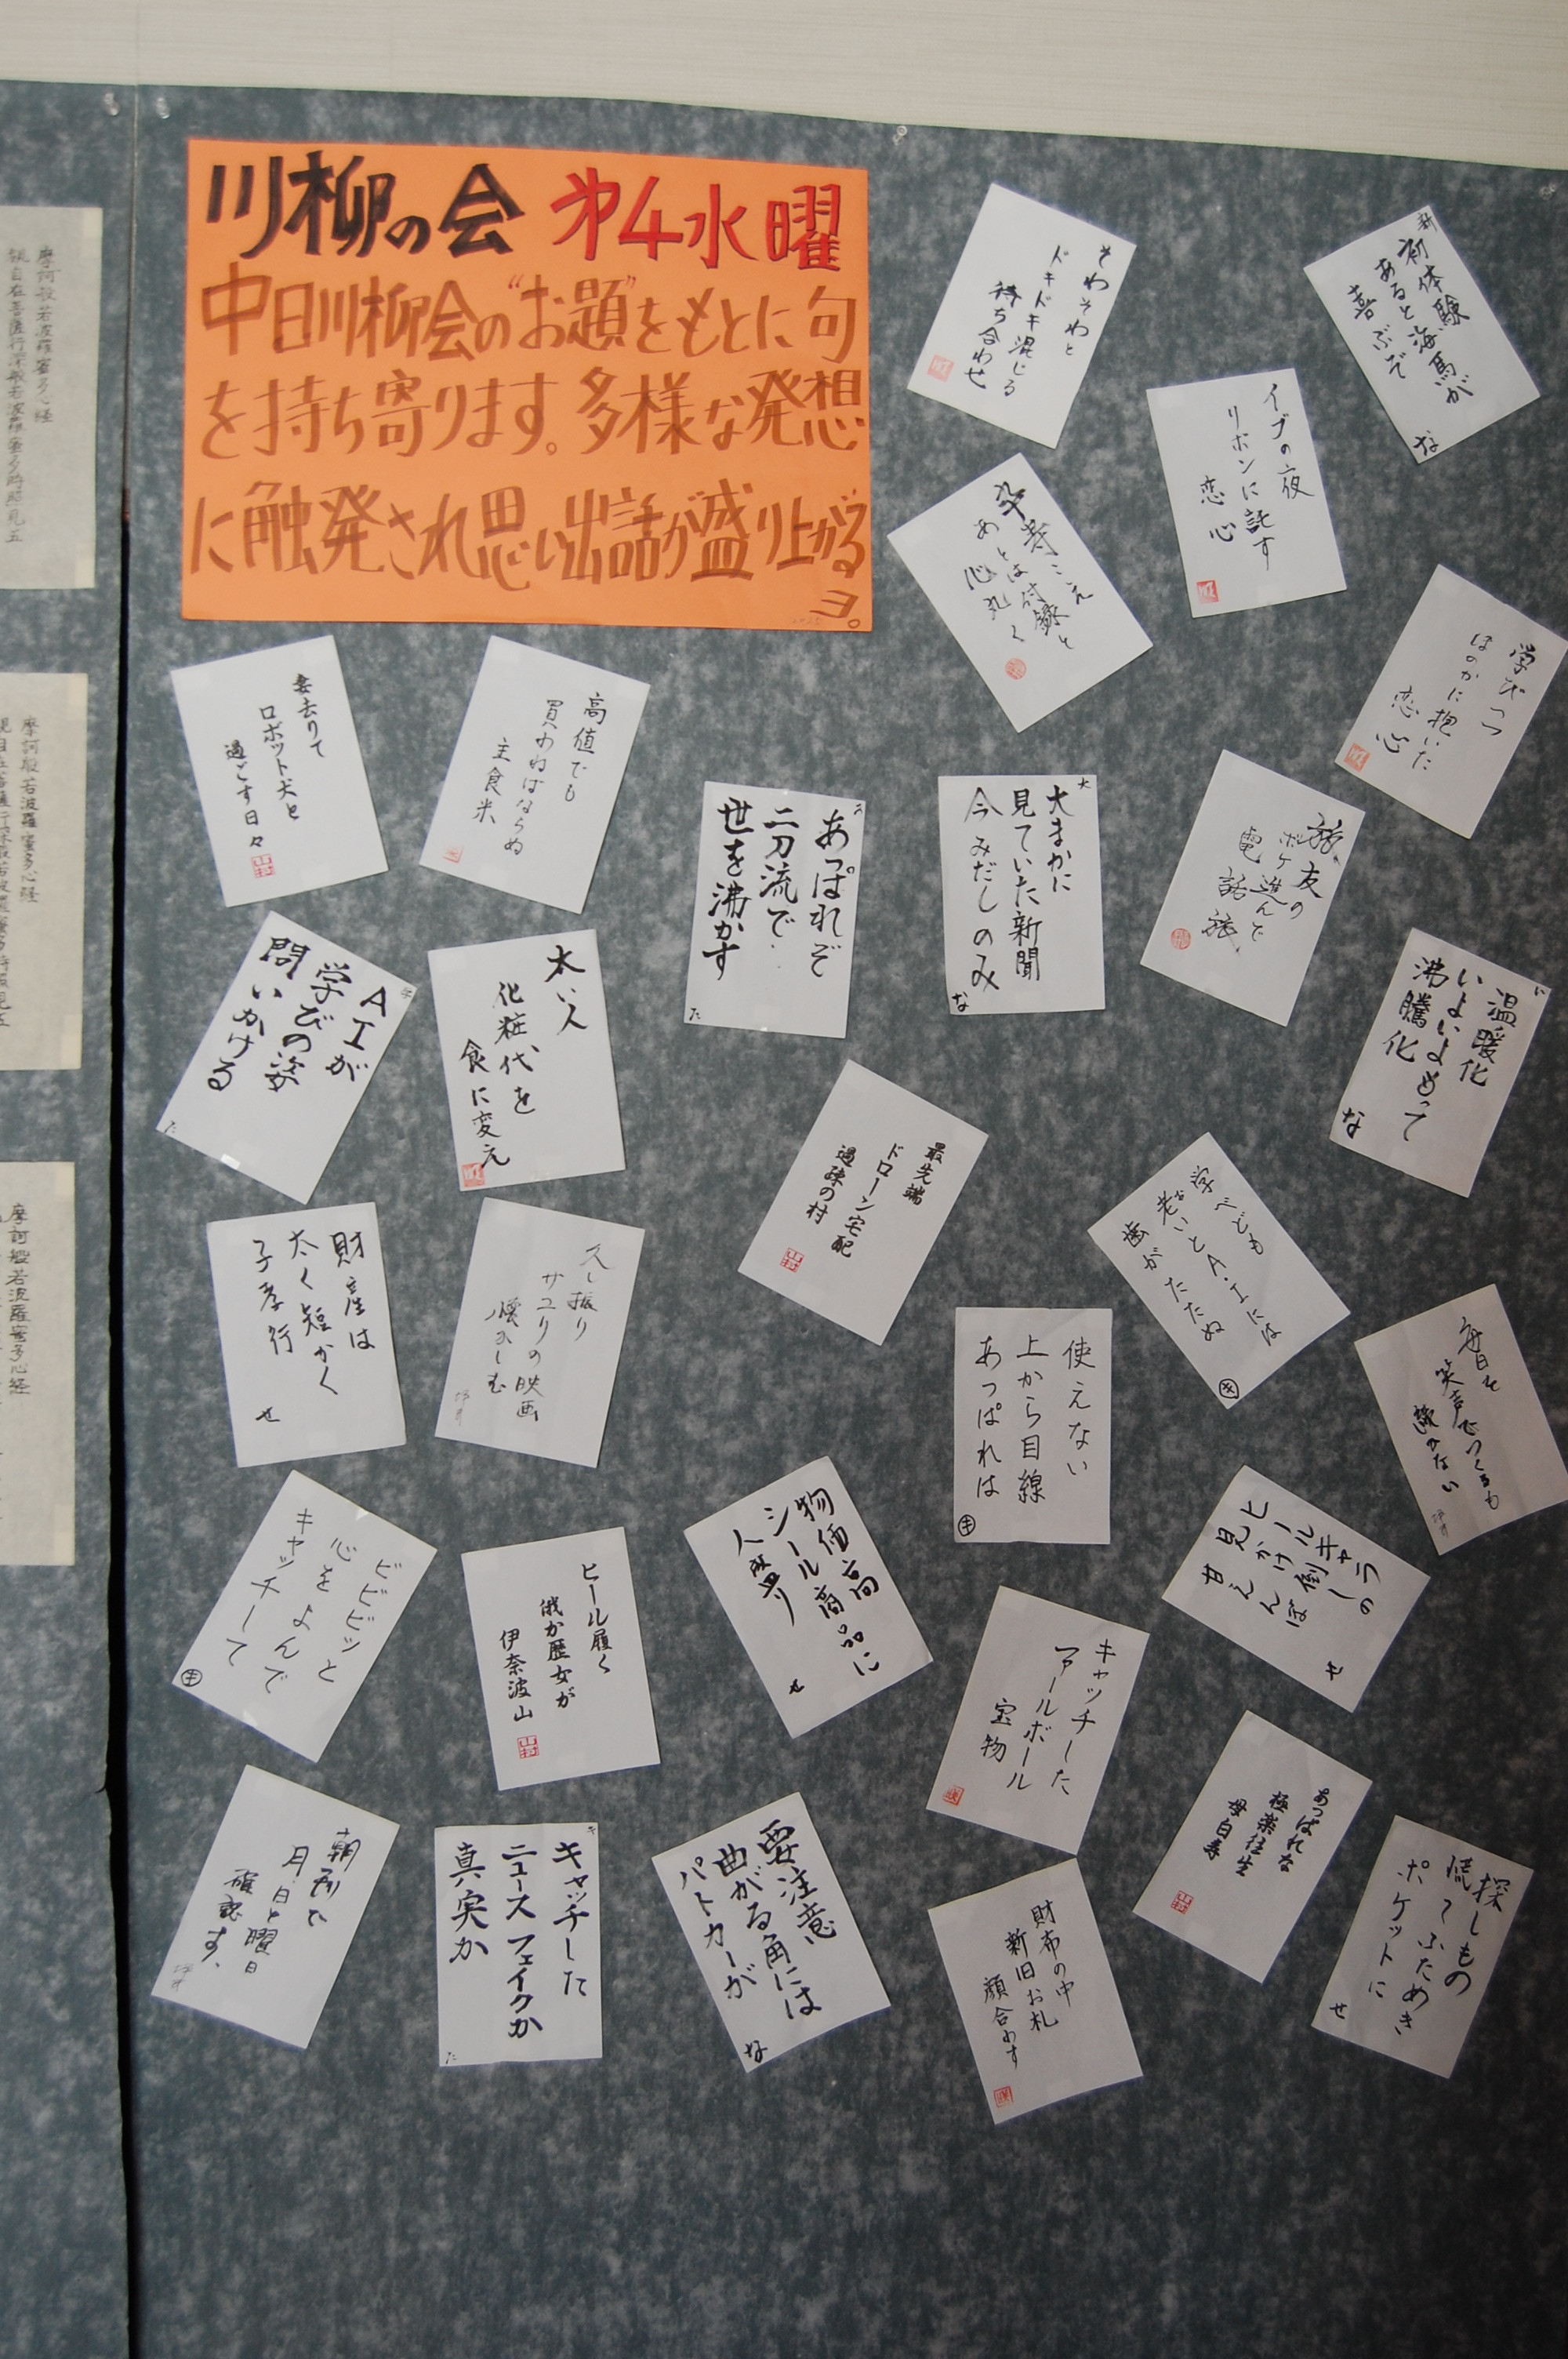 川柳の会 第4水曜
中日川柳会の“お題”をもとに句
を持ち寄ります。多様な発想
に触発され思い出話が盛り上がる
ヨ。
2025
そわそわと
ドキドキ混じる
待ち合わせ
新
初体験
あると海馬が
喜ぶぞ
な
イブの夜
リボンに託す
恋心
傘寿こえ
あとは付録と
心丸く
学びつつ
ほのかに抱いた
恋心
妻去りて
ロボット犬と
過ごす日々
高値でも
買わねばならぬ
主食米
あ
あっぱれぞ
二刀流で
世を沸かす
た
大
大まかに
見ていた新聞
今みだしのみ
な
旅友の
ボケ進んで
電話旅
い
温暖化
いよいよもって
沸騰化
な
AIが
学びの姿
問いかける
た
太い人
化粧代を
食に変え
最先端
ドローン宅配
過疎の村
学べども
老いとA・Iには
歯がたたぬ
キ
財産は
太く短かく
子孝行
せ
久し振り
サユリの映画
懐かしむ
坪井
使えない
上から目線
あっぱれは
キ
毎日を
笑声でつくるも
歳かない
坪井
ビビビッと
心をよんで
キャッチーて
キ
ヒール履く
俄か歴女が
伊奈波山
物価高
シール商品に
人盛り
せ
ヒールキャラ
見かけ倒しの
甘えんぼ
せ
キャッチした
ファールボール
宝物
あっぱれな
極楽往生
母白寿
朝刊で
月・日と曜日
確認す、
坪井
キ
キャッチした
ニュースフェイクか
真実か
た
要注意
曲がる角には
パトカーが
な
財布の中
新旧お札
顔合わす
探しもの
慌てふためき
ポケットに
せ
摩訶般若波羅蜜多心経
観自在菩薩行深般若波羅蜜多時照見五
摩訶般若波羅蜜多心経
摩訶般若波羅蜜多心経